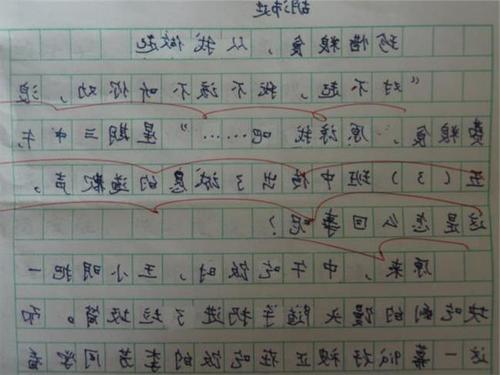 珍惜粮食，从我做起
“对不起，我不该不听你劝，浪
费粮食，原谅我吧……”星期三中午
(3)班中传出了诚恳的道歉声，
这是怎么回事呢？
原来，中午吃饭时，王小明把一
块吃剩的馒头随手扔进了垃圾箱。
这一幕正在吃饭的李同学看